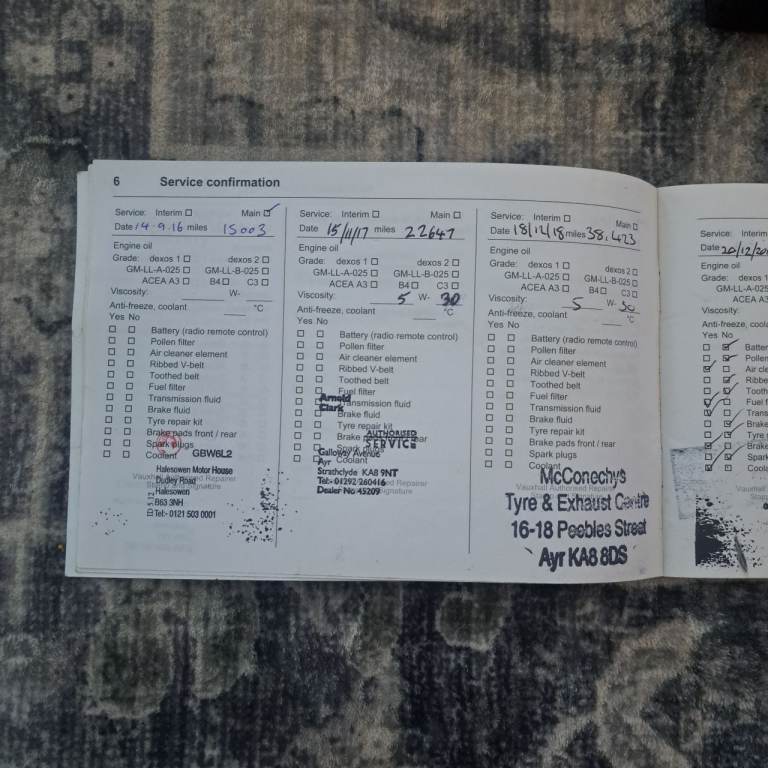 6 Service confirmation
Service: Interim Main
Date 14.9.16 miles 15003
Engine oil
Grade: dexos 1 dexos 2
GM-LL-A-025 GM-LL-B-025
ACEA A3 B4 C3
Viscosity: W-
Anti-freeze, coolant °C
Yes No
Battery (radio remote control)
Pollen filter
Air cleaner element
Ribbed V-belt
Toothed belt
Fuel filter
Transmission fluid
Brake fluid
Tyre repair kit
Brake pads front / rear
Spark plugs
Coolant GBW6L2
Halesowen Motor House
Dudley Road
Halesowen
B63 3NH
Tel:- 0121 503 0001
Service: Interim Main
Date 15/11/17 miles 22647
Engine oil
Grade: dexos 1 dexos 2
GM-LL-A-025 GM-LL-B-025
ACEA A3 B4 C3
Viscosity: 5 W- 30
Anti-freeze, coolant °C
Yes No
Battery (radio remote control)
Pollen filter
Air cleaner element
Ribbed V-belt
Toothed belt
Fuel filter
Arnold
Clark
Transmission fluid
Brake fluid
Tyre repair kit
AUTHORISED
SERVICE
Galloway Avenue
Ayr
Coolant
Strathclyde KA8 9NT
Tel:- 01292 260416
Dealer No 45209
Service: Interim Main
Date 18/12/18 miles 38,423
Engine oil
Grade: dexos 1 dexos 2
GM-LL-A-025 GM-LL-B-025
ACEA A3 B4 C3
Viscosity: 5 W- 30
Anti-freeze, coolant °C
Yes No
Battery (radio remote control)
Pollen filter
Air cleaner element
Ribbed V-belt
Toothed belt
Fuel filter
Transmission fluid
Brake fluid
Tyre repair kit
Brake pads front / rear
Spark plugs
Coolant
McConechys
Tyre & Exhaust Centre
16-18 Peebles Street
Ayr KA8 8DS
Service: Interim
Date 20/12/20
Engine oil
Grade: dexos 1
GM-LL-A-025
ACEA A3
Viscosity:
Anti-freeze, coola
Yes No
Batter
Pollen
Air cle
Ribbe
Tooth
Fuel f
Trans
Brake
Tyre
Brake
Spark
Coola